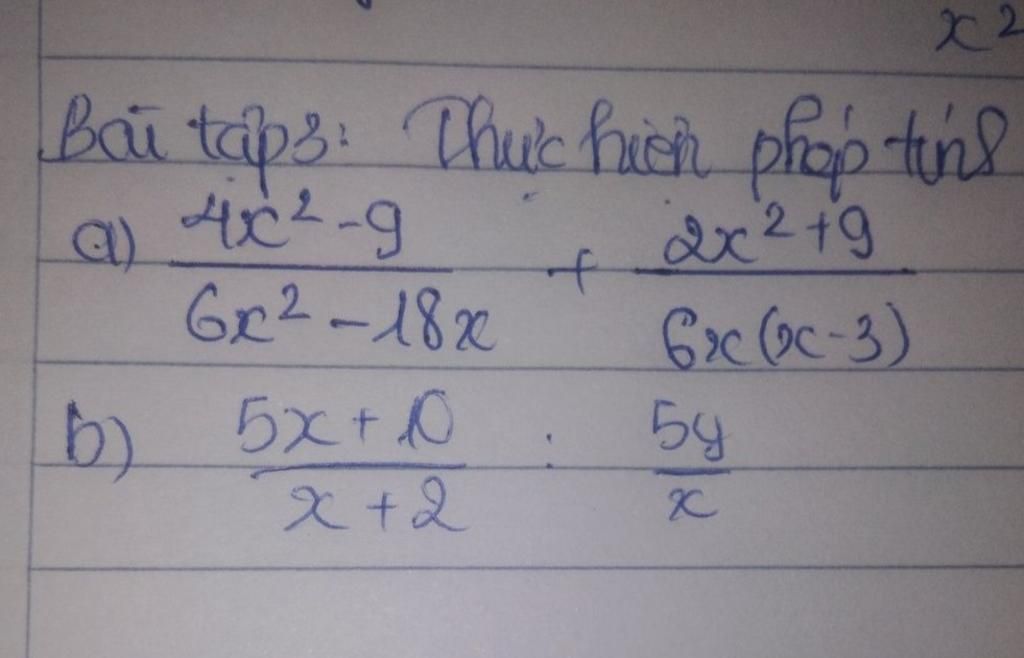 x²
Bài tập 3: Thực hiện phép tính
a) \frac{4x² - 9}{6x² - 18x} + \frac{2x² + 9}{6x(x - 3)}
b) \frac{5x + 10}{x + 2} : \frac{5y}{x}